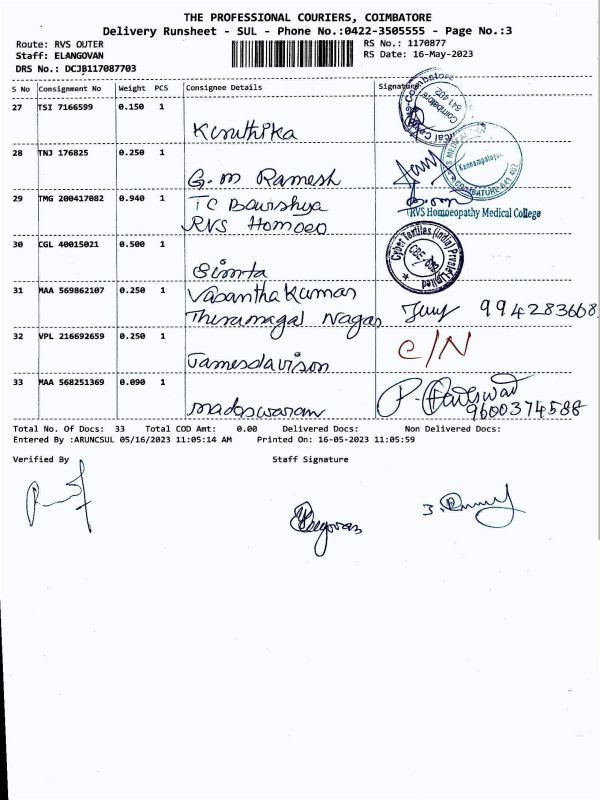 THE PROFESSIONAL COURIERS, COIMBATORE
Delivery Runsheet - SUL - Phone No.:0422-3505555 - Page No.:3
Route: RVS OUTER
RS No.: 1170877
Staff: ELANGOVAN
RS Date: 16-May-2023
DRS No.: DCJB117087703
S No Consignment No Weight PCS Consignee Details Signature
27 TSI 7166599 0.150 1
Kiruthika
28 TNJ 176825 0.250 1
G.M Ramesh
29 TMG 200417082 0.940 1 TC
RVS Homoeo
RVS Homoeopathy Medical College
30 CGL 40015021 0.500 1
Cyber Textiles (India) Private Limited
31 MAA 569862107 0.250 1 Vasantha Kumar
Thirumagal Nagar 994283668
32 VPL 216692659 0.250 1 C/N
Jamesdavison
33 MAA 568251369 0.090 1
madeswaran 9600374588
Total No. Of Docs: 33 Total COD Amt: 0.00 Delivered Docs: Non Delivered Docs:
Entered By :ARUNCSUL 05/16/2023 11:05:14 AM Printed On: 16-05-2023 11:05:59
Verified By Staff Signature